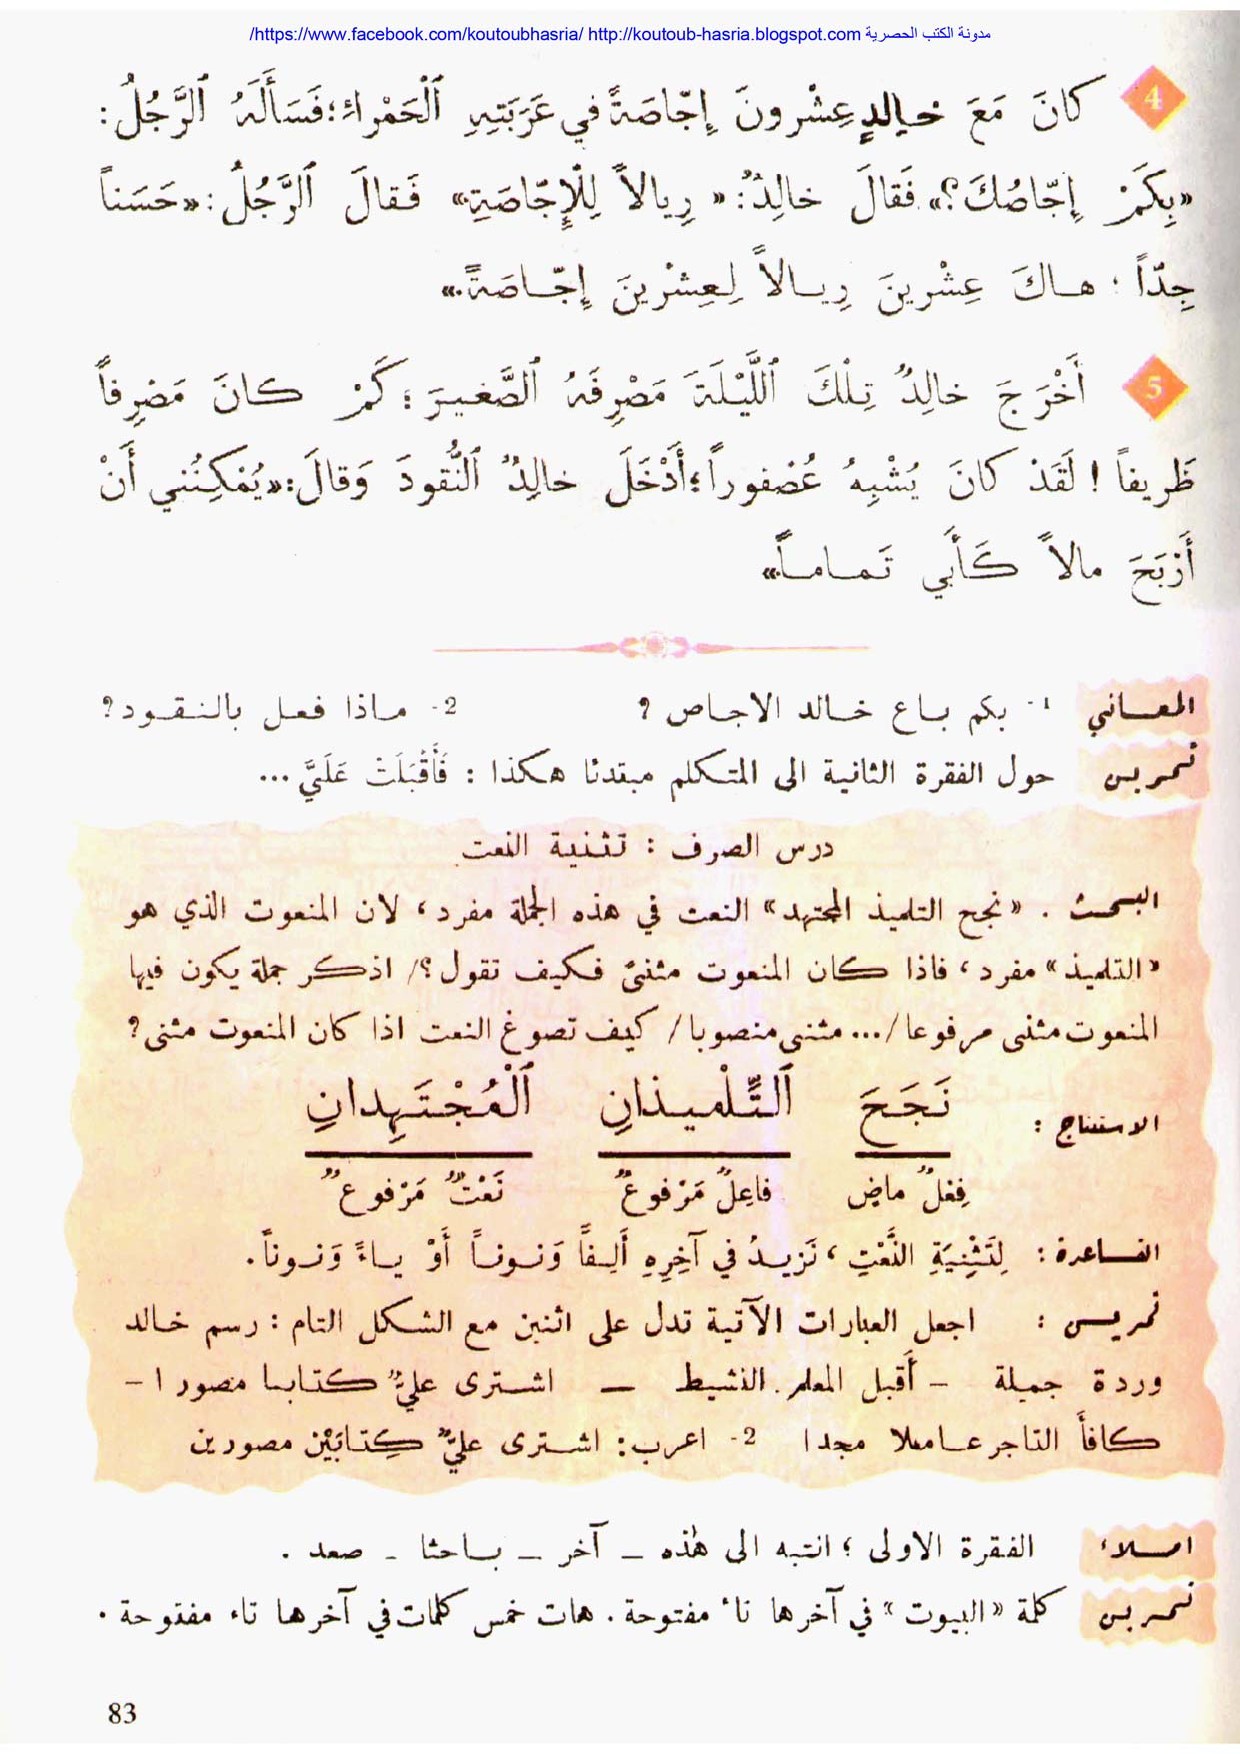 https://www.facebook.com/koutoubhasria/ http://koutoub-hasria.blogspot.com مدونة الكتب الحصرية/
4 كانَ مَعَ خالِدٍ عِشْرونَ إِجّاصَةً في عَرَبَتِهِ ٱلْحَمْراءِ؛ فَسَأَلَهُ ٱلرَّجُلُ:
«بِكَمْ إِجّاصُكَ؟» فَقالَ خالِدٌ: «رِيالاً لِلْإِجّاصَةِ» فَقالَ ٱلرَّجُلُ: «حَسَناً
جِدّاً؛ هاكَ عِشْرينَ رِيالاً لِعِشْرينَ إِجّاصَةً.»
5 أَخْرَجَ خالِدٌ تِلْكَ ٱللَّيْلَةَ مَصْرِفَهُ ٱلصَّغيرَ؛ كَمْ كانَ مَصْرِفاً
ظَريفاً! لَقَدْ كانَ يُشْبِهُ عُصْفوراً؛ أَدْخَلَ خالِدٌ ٱلنُّقودَ وَقالَ: «يُمْكِنُني أَنْ
أَرْبَحَ مالاً كَأَبي تَماماً.»
المعاني 1- بكم باع خالد الاجاص ؟ 2- ماذا فعل بالنقود؟
تمرين حول الفقرة الثانية الى المتكلم مبتدئا هكذا : فَأَقْبَلَتْ عَلَيَّ ...
درس الصرف : تثنية النعت
البحث . «نجح التلميذ المجتهد» النعت في هذه الجملة مفرد، لان المنعوت الذي هو
«التلميذ» مفرد، فاذا كان المنعوت مثنىً فكيف تقول؟/ اذكر جملة يكون فيها
المنعوت مثنى مرفوعا/... مثنى منصوبا/ كيف تصوغ النعت اذا كان المنعوت مثنى؟
الاستنتاج : نَجَحَ ٱلتِّلْميذانِ ٱلْمُجْتَهِدانِ
فِعْلٌ ماضٍ فاعِلٌ مَرْفوعٌ نَعْتٌ مَرْفوعٌ
القاعدة : لِتَثْنِيَةِ النَّعْتِ، نَزيدُ في آخِرِهِ أَلِفاً وَنوناً أَوْ ياءً وَنوناً.
تمرين : اجعل العبارات الآتية تدل على اثنين مع الشكل التام : رسم خالد
وردة جميلة - أَقبل المعلم النشيط — اشترى عليٌّ كتابا مصورا -
كافأَ التاجر عاملا مجدا 2- اعرب: اشترى عليٌّ كِتابَيْنِ مصورين
املاء الفقرة الاولى ؛ انتبه الى هٰذه — آخر — باحثا - صعد .
تمرين كلمة «البيوت» في آخرها تاء مفتوحة . هات خمس كلمات في آخرها تاء مفتوحة .
83